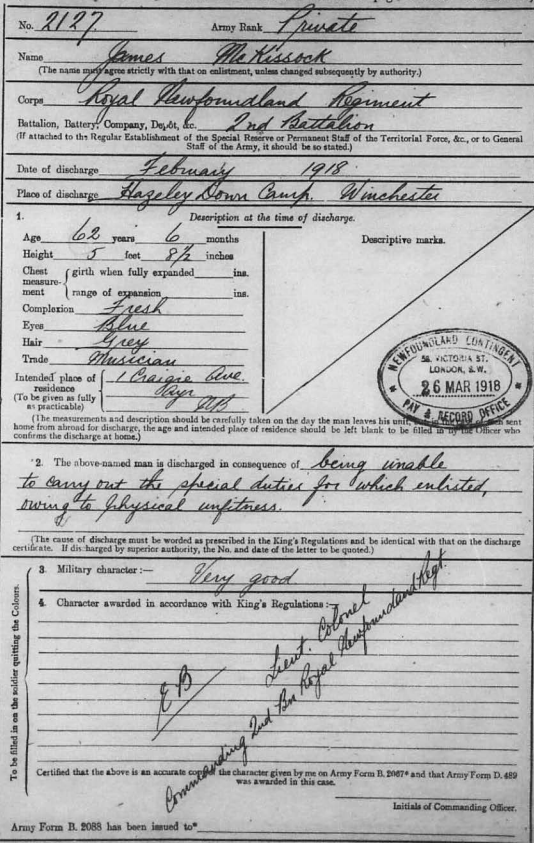 No. 2127. Army Rank Private
Name James McKissock
(The name must agree strictly with that on enlistment, unless changed subsequently by authority.)
Corps Royal Newfoundland Regiment
Battalion, Battery, Company, Depôt, &c. 2nd Battalion
(If attached to the Regular Establishment of the Special Reserve or Permanent Staff of the Territorial Force, &c., or to General
Staff of the Army, it should be so stated.)
Date of discharge February 1918
Place of discharge Hazeley Down Camp. Winchester
1. Description at the time of discharge.
Age 62 years 6 months
Height 5 feet 8½ inches
Chest measure-ment { girth when fully expanded ins.
range of expansion ins.
Complexion Fresh
Eyes Blue
Hair Grey
Trade Musician
Intended place of residence 1 Craigie Ave.
(To be given as fully as practicable) Ayr
NB
Descriptive marks.
NEWFOUNDLAND CONTINGENT
58, VICTORIA ST.
LONDON, S.W.
26 MAR 1918
PAY & RECORD OFFICE
(The measurements and description should be carefully taken on the day the man leaves his unit, sent
home from abroad for discharge, the age and intended place of residence should be left blank to be filled in by the Officer who
confirms the discharge at home.)
2. The above-named man is discharged in consequence of being unable
to carry out the special duties for which enlisted,
owing to physical unfitness.
(The cause of discharge must be worded as prescribed in the King's Regulations and be identical with that on the discharge
certificate. If discharged by superior authority, the No. and date of the letter to be quoted.)
To be filled in on the soldier quitting the Colours.
3. Military character:— Very good
4. Character awarded in accordance with King's Regulations:—
E B
Lieut. Colonel
Commanding 2nd Bn Royal Newfoundland Regt.
Certified that the above is an accurate copy of the character given by me on Army Form B. 2067* and that Army Form D. 489
was awarded in this case.
Initials of Commanding Officer.
Army Form B. 2088 has been issued to*